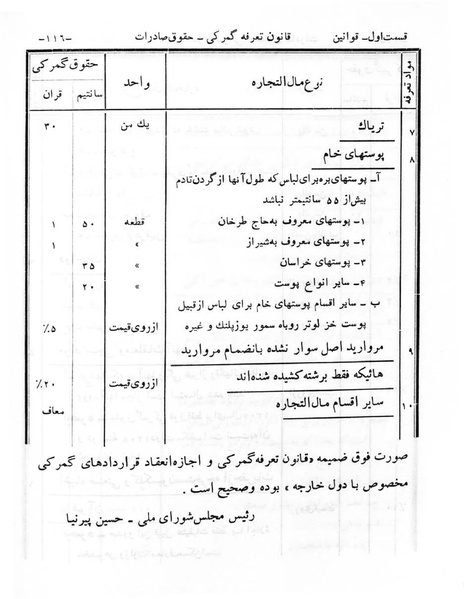 قسمت اول ـ قوانین قانون تعرفه گمرکی ـ حقوق صادرات -۱۱۶-
مواد تعرفه نوع مال التجاره واحد حقوق گمرکی
سانتیم قران
۷ تریاك یك من ۳۰
۸ پوستهای خام
آـ پوستهای بره برای لباس که طول آنها از گردن تا دم
بیش از ۵۵ سانتیمتر نباشد
۱ـ پوستهای معروف به حاج طرخان قطعه ۵۰ ۱
۲ـ پوستهای معروف به شیراز » ۱
۳ـ پوستهای خراسان » ۳۵
۴ـ سایر انواع پوست » ۲۰
ب ـ سایر اقسام پوستهای خام برای لباس از قبیل
پوست خز لوتر روباه سمور یوزپلنك و غیره ازروی قیمت ۵٪
۹ مروارید اصل سوار نشده بانضمام مروارید
هائیکه فقط برشته کشیده شده اند ازروی قیمت ۲۰٪
۱۰ سایر اقسام مال التجاره معاف
صورت فوق ضمیمه «قانون تعرفه گمرکی و اجازه انعقاد قراردادهای گمرکی
مخصوص با دول خارجه » بوده وصحیح است .
رئیس مجلس شورای ملی ـ حسین پیرنیا